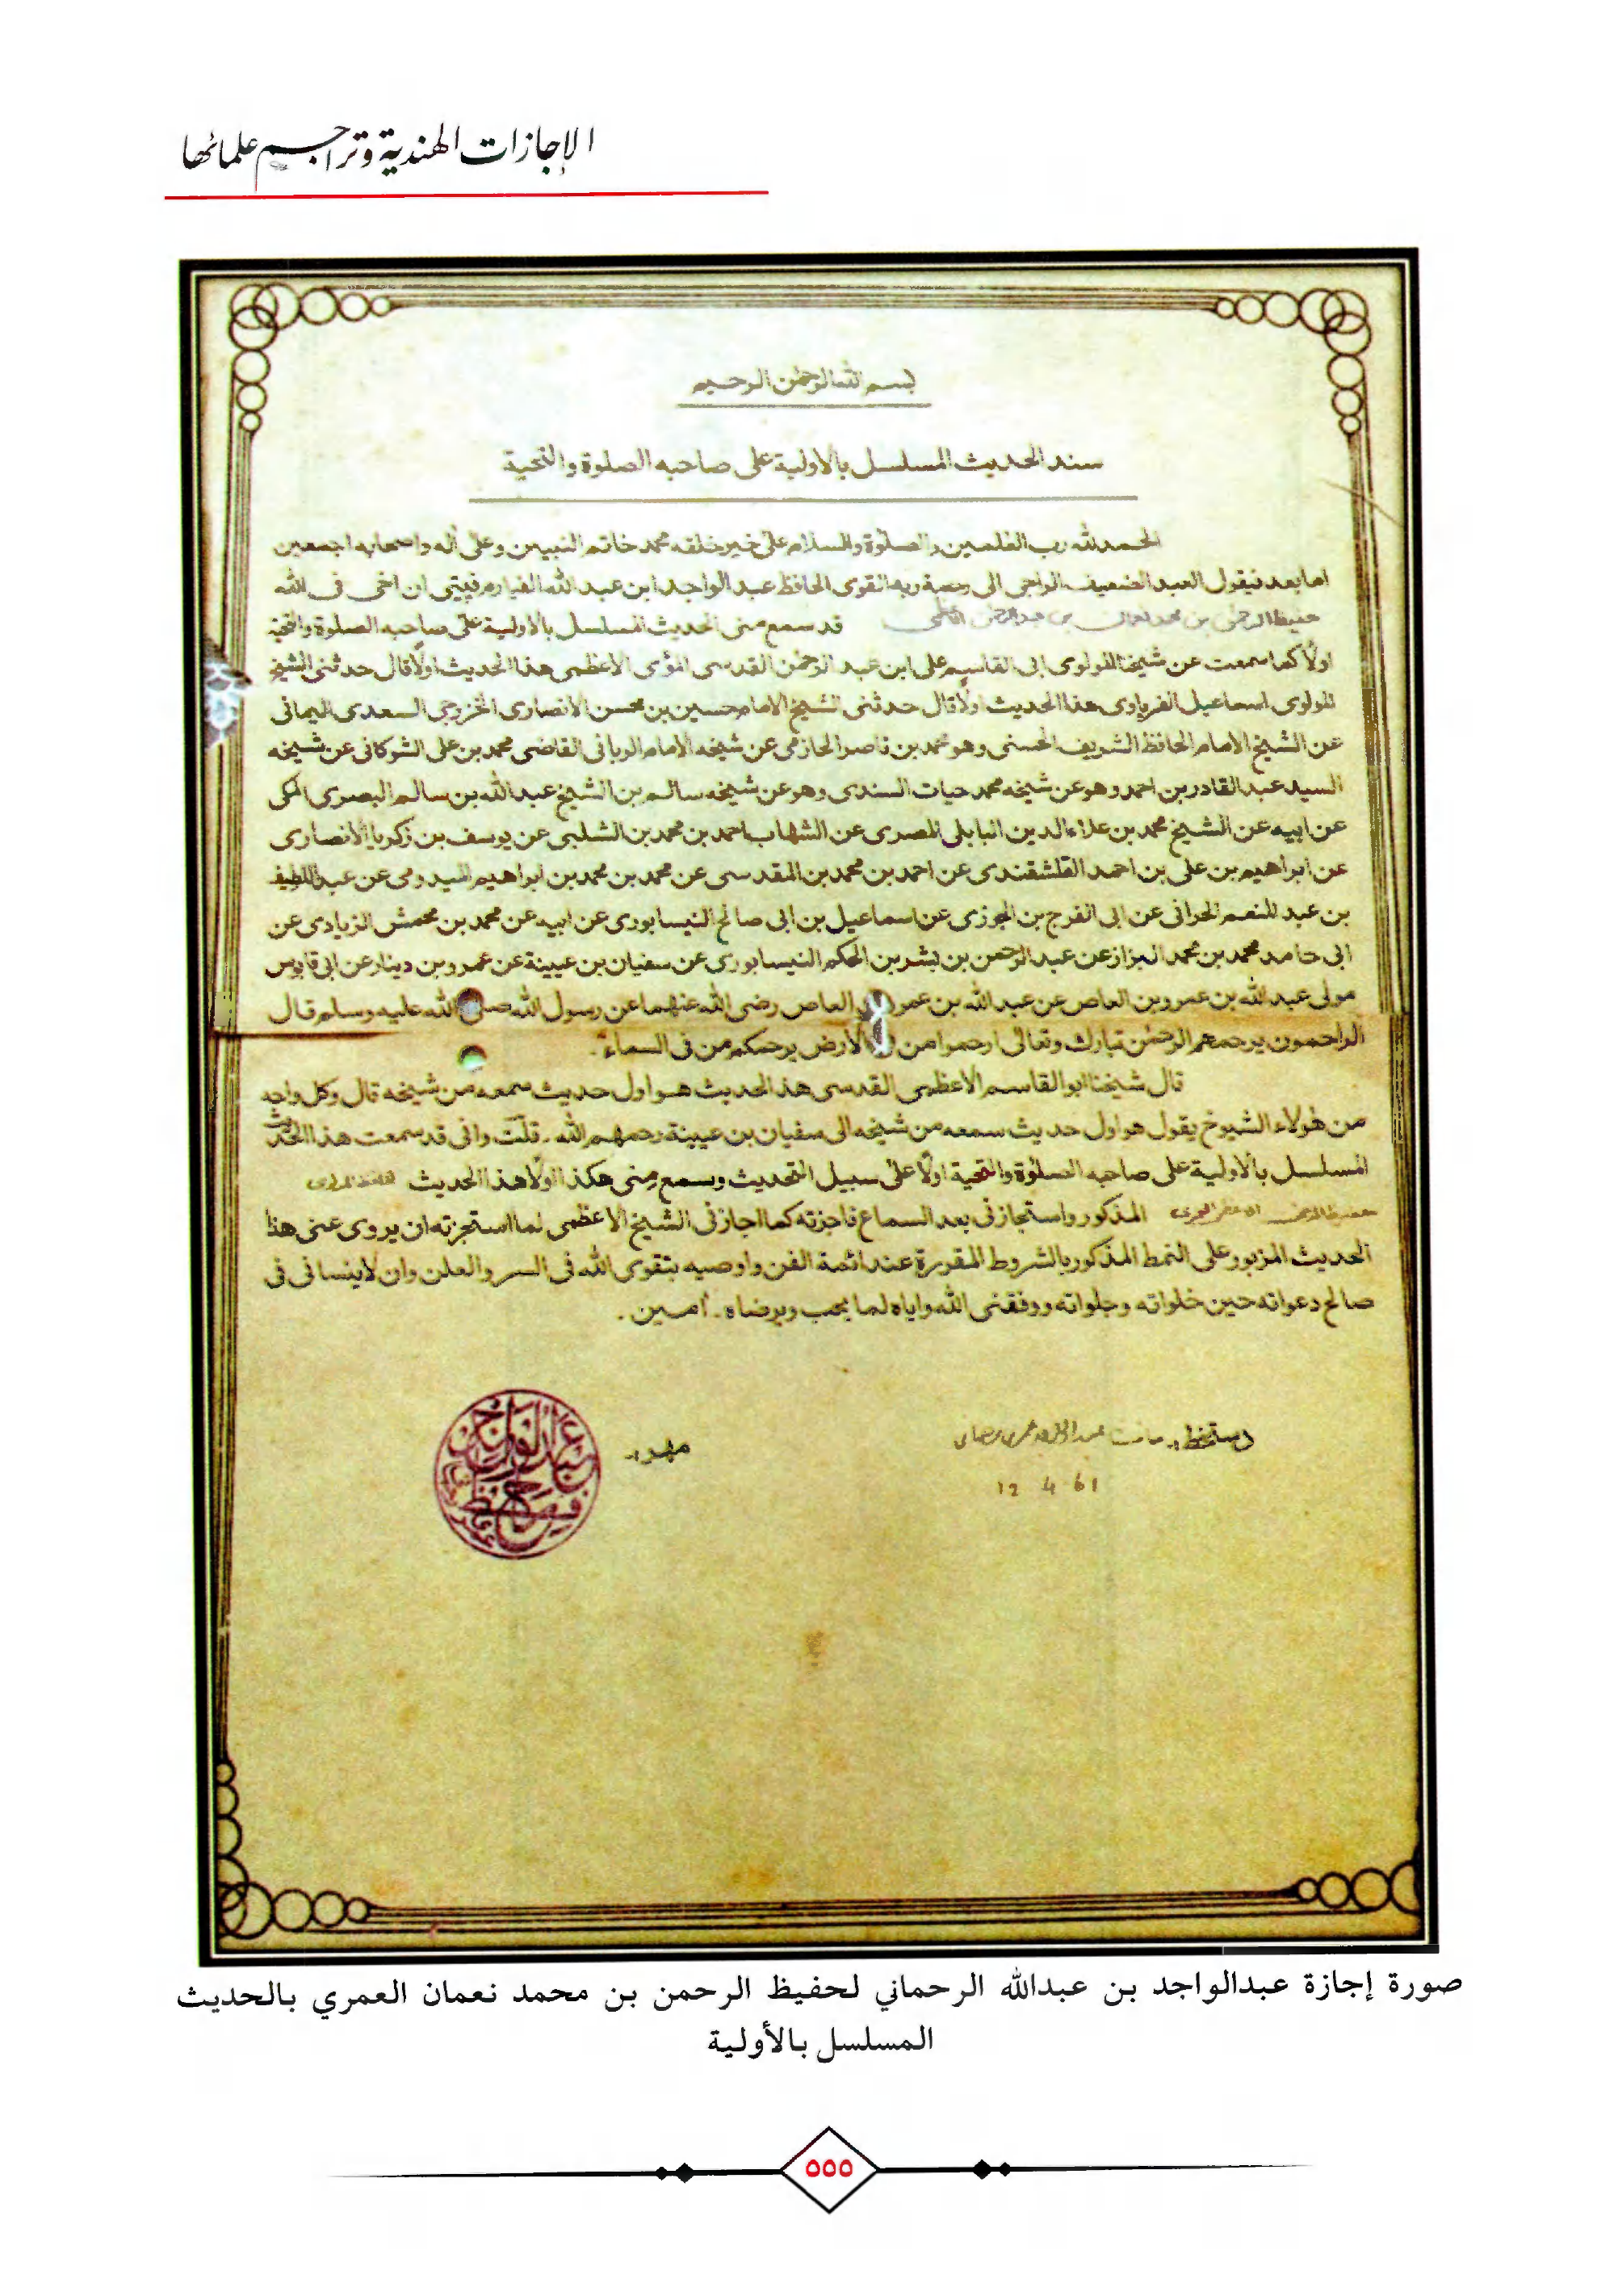 الإجازات الهندية وتراجم علمائها
بسم الله الرحمٰن الرحيم
سند الحديث المسلسل بالاولية على صاحبه الصلوة والتحية
الحمد لله رب العٰلمين والصلوة والسلام على خير خلقه محمد خاتم النبيين وعلى أله واصحابه اجمعين
اما بعد فيقول العبد الضعيف الراجى الى رحمة ربه القوى الحافظ عبد الواجد ابن عبد الله ان اخى فى الله
حفيظ الرحمٰن بن محمد نعمان بن عبد الرحمٰن قد سمع منى الحديث المسلسل بالاولية على صاحبه الصلوة والتحية
اولًا كما سمعت عن شيخنا المولوى ابى القاسم على ابن عبد الرحمٰن القدسى المؤى الاعظمى هذا الحديث اولًا قال حدثنى الشيخ
المولوى اسماعيل هذا الحديث اولًا قال حدثنى الشيخ الامام حسين بن محسن الانصارى الخزرجى السعدى اليمانى
عن الشيخ الامام الحافظ الشريف الحسنى وهو محمد بن ناصر الحازمى عن شيخه الامام الربانى القاضى محمد بن على الشوكانى عن شيخه
السيد عبد القادر بن احمد وهو عن شيخه محمد حيات السندى وهو عن شيخه سالم بن الشيخ عبد الله بن سالم البصرى المكى
عن ابيه عن الشيخ محمد بن علاء الدين البابلى المصرى عن الشهاب احمد بن محمد بن الشلبى عن يوسف بن زكريا الانصارى
عن ابراهيم بن على بن احمد القلشقندى عن احمد بن محمد بن المقدسى عن محمد بن محمد بن ابراهيم الميدومى عن عبد اللطيف
بن عبد المنعم الحرانى عن ابى الفرج بن الجوزى عن اسماعيل بن ابى صالح النيسابورى عن ابيه عن محمد بن محمش الزيادى عن
ابى حامد محمد بن محمد البزاز عن عبد الرحمن بن بشر بن الحكم النيسابورى عن سفيان بن عيينة عن عمرو بن دينار عن ابى قابوس
مولى عبد الله بن عمرو بن العاص عن عبد الله بن عمرو بن العاص رضى الله عنهما عن رسول الله صلى الله عليه وسلم قال
الراحمون يرحمهم الرحمٰن تبارك وتعالى ارحموا من فى الارض يرحمكم من فى السماء.
قال شيخنا ابو القاسم الاعظمى القدسى هذ الحديث هو اول حديث سمعه من شيخه قال وكل واحد
من هٰولاء الشيوخ يقول هو اول حديث سمعه من شيخه الى سفيان بن عيينة رحمهم الله ـ قلت وانى قد سمعت هذا الحديث
المسلسل بالاولية على صاحبه الصلوة والتحية اولًا على سبيل التحديث وسمع منى هكذا اولًا هذا الحديث
حفيظ الرحمٰن المذكور واستجازنى بعد السماع فاجزته كما اجازنى الشيخ الاعظمى لما استجزته ان يروى عنى هذا
الحديث المزبور على النمط المذكور بالشروط المقررة عند ائمة الفن واوصيه بتقوى الله فى السر والعلن وان لا ينسانى فى
صالح دعواته حين خلواته وجلواته ووفقنى الله واياه لما يحب ويرضاه ـ اٰمين.
دستخط:ـ
مهر:ـ
12 4 61
صورة إجازة عبدالواجد بن عبدالله الرحماني لحفيظ الرحمن بن محمد نعمان العمري بالحديث
المسلسل بالأولية
٥٥٥